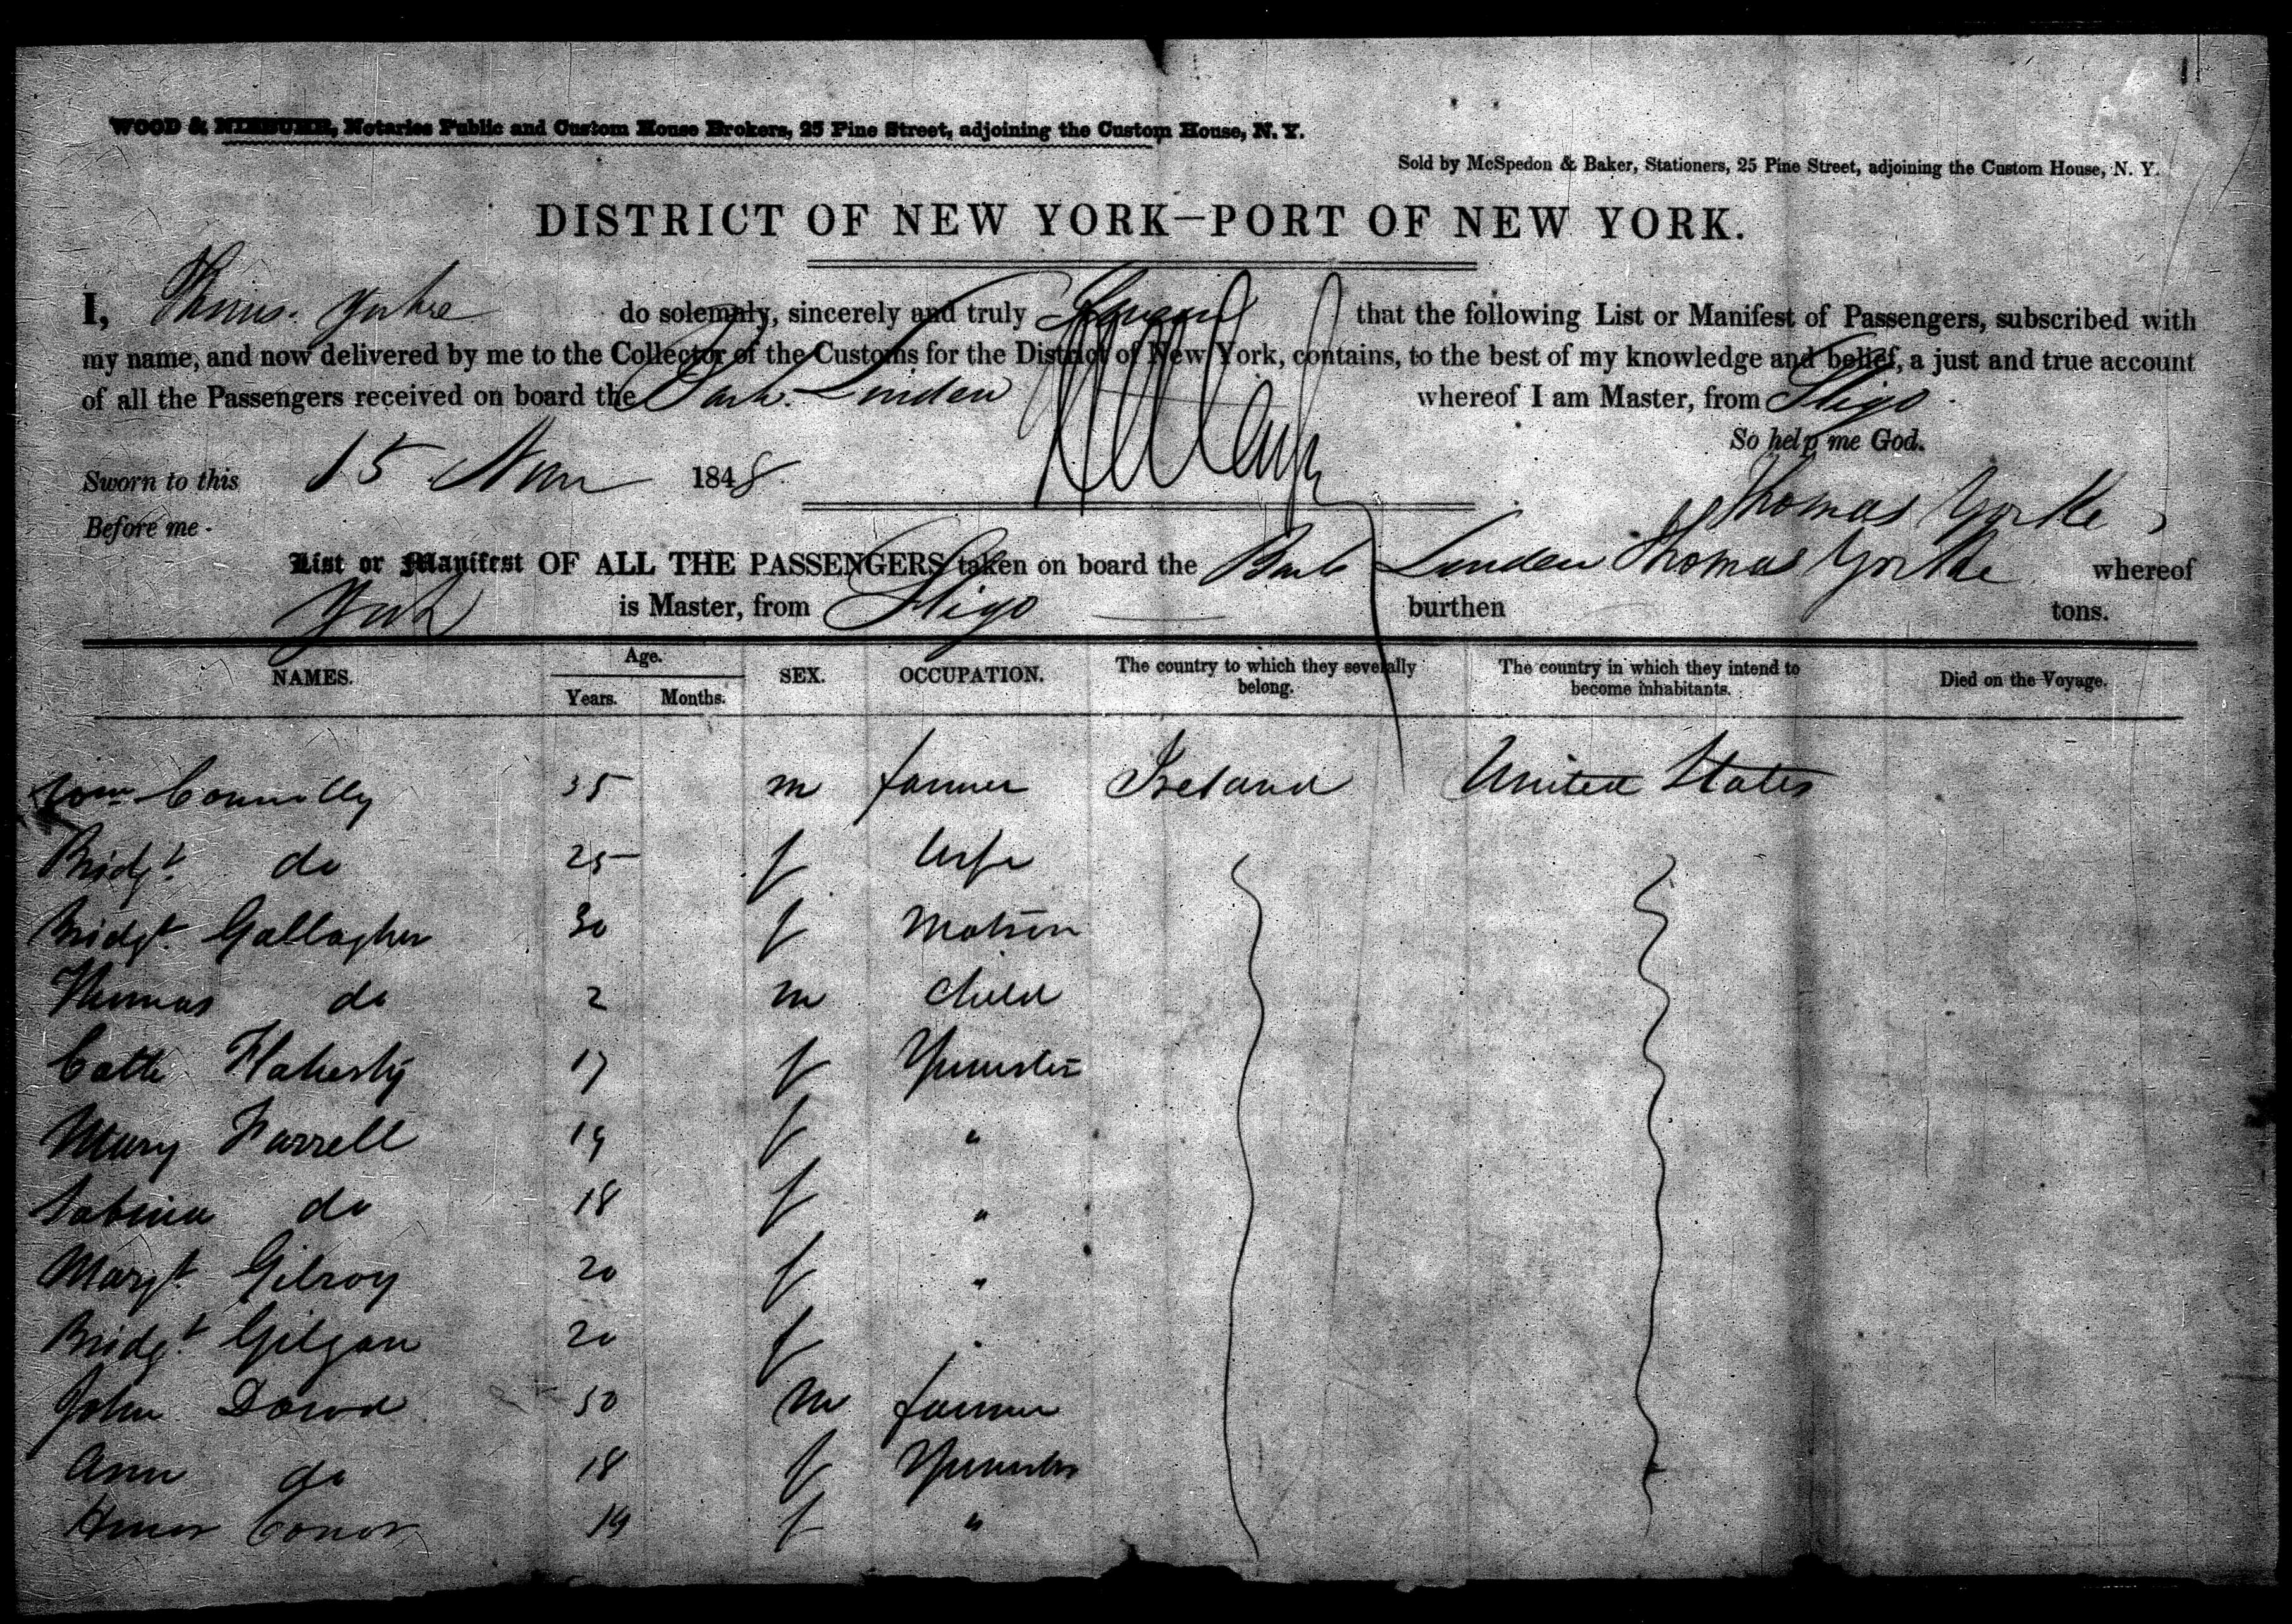 WOOD & NIEBUHR, Notaries Public and Custom House Brokers, 25 Pine Street, adjoining the Custom House, N. Y.
Sold by McSpedon & Baker, Stationers, 25 Pine Street, adjoining the Custom House, N. Y.
DISTRICT OF NEW YORK—PORT OF NEW YORK.
I, Thomas Yorke do solemnly, sincerely and truly Swear that the following List or Manifest of Passengers, subscribed with
my name, and now delivered by me to the Collector of the Customs for the District of New York, contains, to the best of my knowledge and belief, a just and true account
of all the Passengers received on board the Bark Linden whereof I am Master, from Sligo
So help me God.
Sworn to this 15 Nov 1848
Thomas Yorke
Before me
List or Manifest OF ALL THE PASSENGERS taken on board the Bark Linden Thomas Yorke whereof
York is Master, from Sligo burthen tons.
NAMES. Age. Years. Months. SEX. OCCUPATION. The country to which they severally belong. The country in which they intend to become inhabitants. Died on the Voyage.
Wm Connolly 35 m farmer Ireland United States
Bridgt do 25 f Wife
Bridgt Gallagher 30 f Matron
Thomas do 2 m Child
Cath Flaherty 17 f Spinster
Mary Farrell 19 f "
Sabina do 18 f "
Margt Gilroy 20 f "
Bridgt Gilgan 20 f "
John Dowd 50 m farmer
Ann do 18 f Spinster
Honor Conor 19 f "